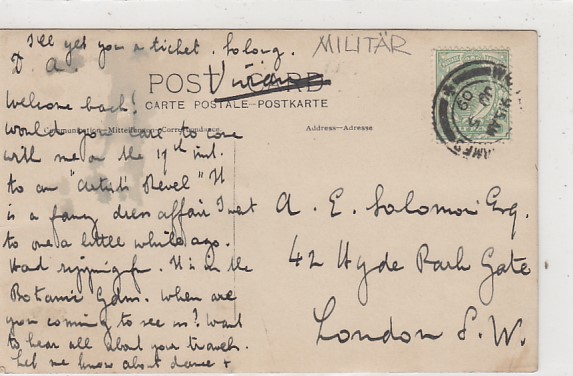 I'll get you a ticket. So long.
D. A.
Vivian
MILITÄR
POST CARD
CARTE POSTALE-POSTKARTE
Communication-Mittheilung-Correspondance.
Address-Adresse
Welcome back!
Would you care to come
with me on the 17th inst.
to an "Artists Revel" It
is a fancy dress affair I went
to one a little while ago.
Had ripping fun. It is in the
Botanic Gdns. When are
you coming to see us? Want
to hear all about your travels.
Let me know about dance +
A. E. Salomon Esq.
42 Hyde Park Gate
London S.W.